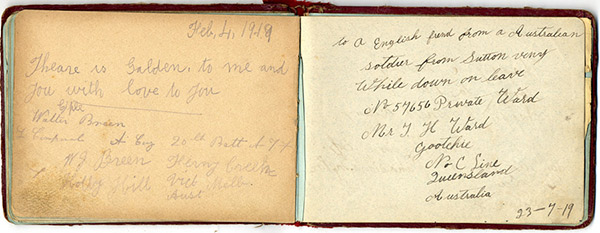 Feb, 4, 1919
Theare is Golden, to me and
you with love to you
Walter Breen
A Coy 20th Batt A.I.F
W J Breen Creek
Hill Vic
Aust
to a English frend from a Australian
soldier from Sutton veny
While down on leave
No 57656 Private Ward
Mr T. H Ward
No C Line
Queensland
Australia
23-7-19